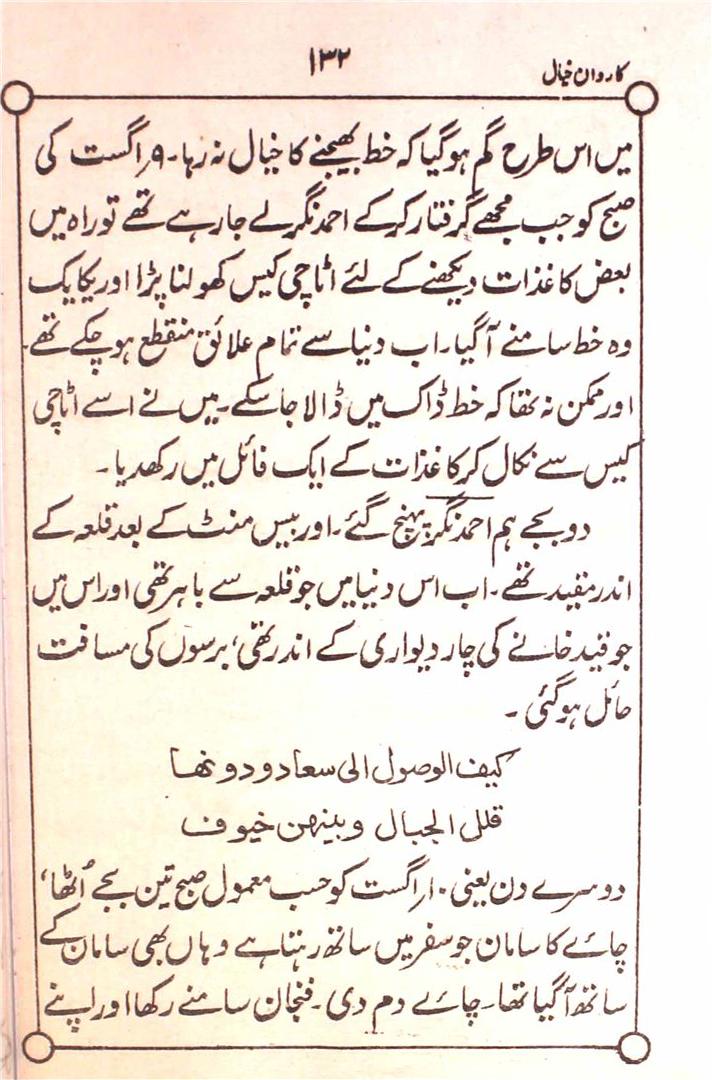 کاروان خیال
۱۳۲
میں اس طرح گم ہوگیا کہ خط بھیجنے کا خیال نہ رہا۔ ۹؍ اگست کی
صبح کو جب مجھے گرفتار کرکے احمد نگر لے جا رہے تھے تو راہ میں
بعض کاغذات دیکھنے کے لئے اٹاچی کیس کھولنا پڑا اور یکایک
وہ خط سامنے آگیا۔ اب دنیا سے تمام علائق منقطع ہوچکے تھے۔
اور ممکن نہ تھا کہ خط ڈاک میں ڈالا جا سکے۔ میں نے اسے اٹاچی
کیس سے نکال کر کاغذات کے ایک فائل میں رکھدیا۔
دو بجے ہم احمد نگر پہنچ گئے۔ اور بیس منٹ کے بعد قلعہ کے
اندر مقید تھے۔ اب اس دنیا میں جو قلعہ سے باہر تھی اور اس میں
جو قید خانے کی چار دیواری کے اندر تھی، برسوں کی مسافت
حائل ہوگئی۔
کیف الوصول الی سعاد و دونھا
قلل الجبال وبینھن خیوف
دوسرے دن یعنی ۱۰؍ اگست کو حسب معمول صبح تین بجے اُٹھا،
چائے کا سامان جو سفر میں ساتھ رہتا ہے وہاں بھی سامان کے
ساتھ آگیا تھا۔ چائے دم دی۔ فنجان سامنے رکھا اور اپنے